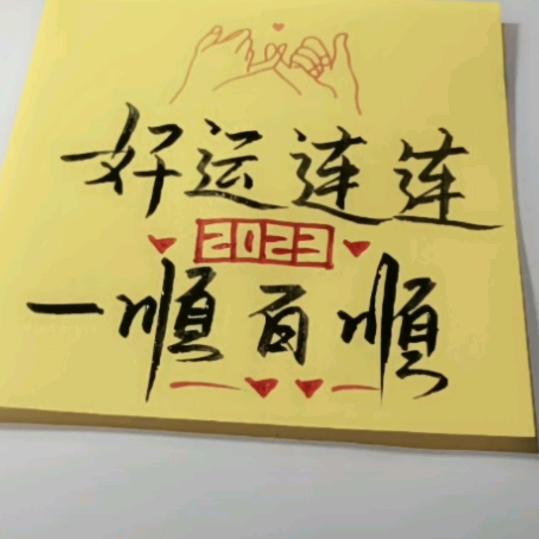 好运连连
2023
一顺百顺